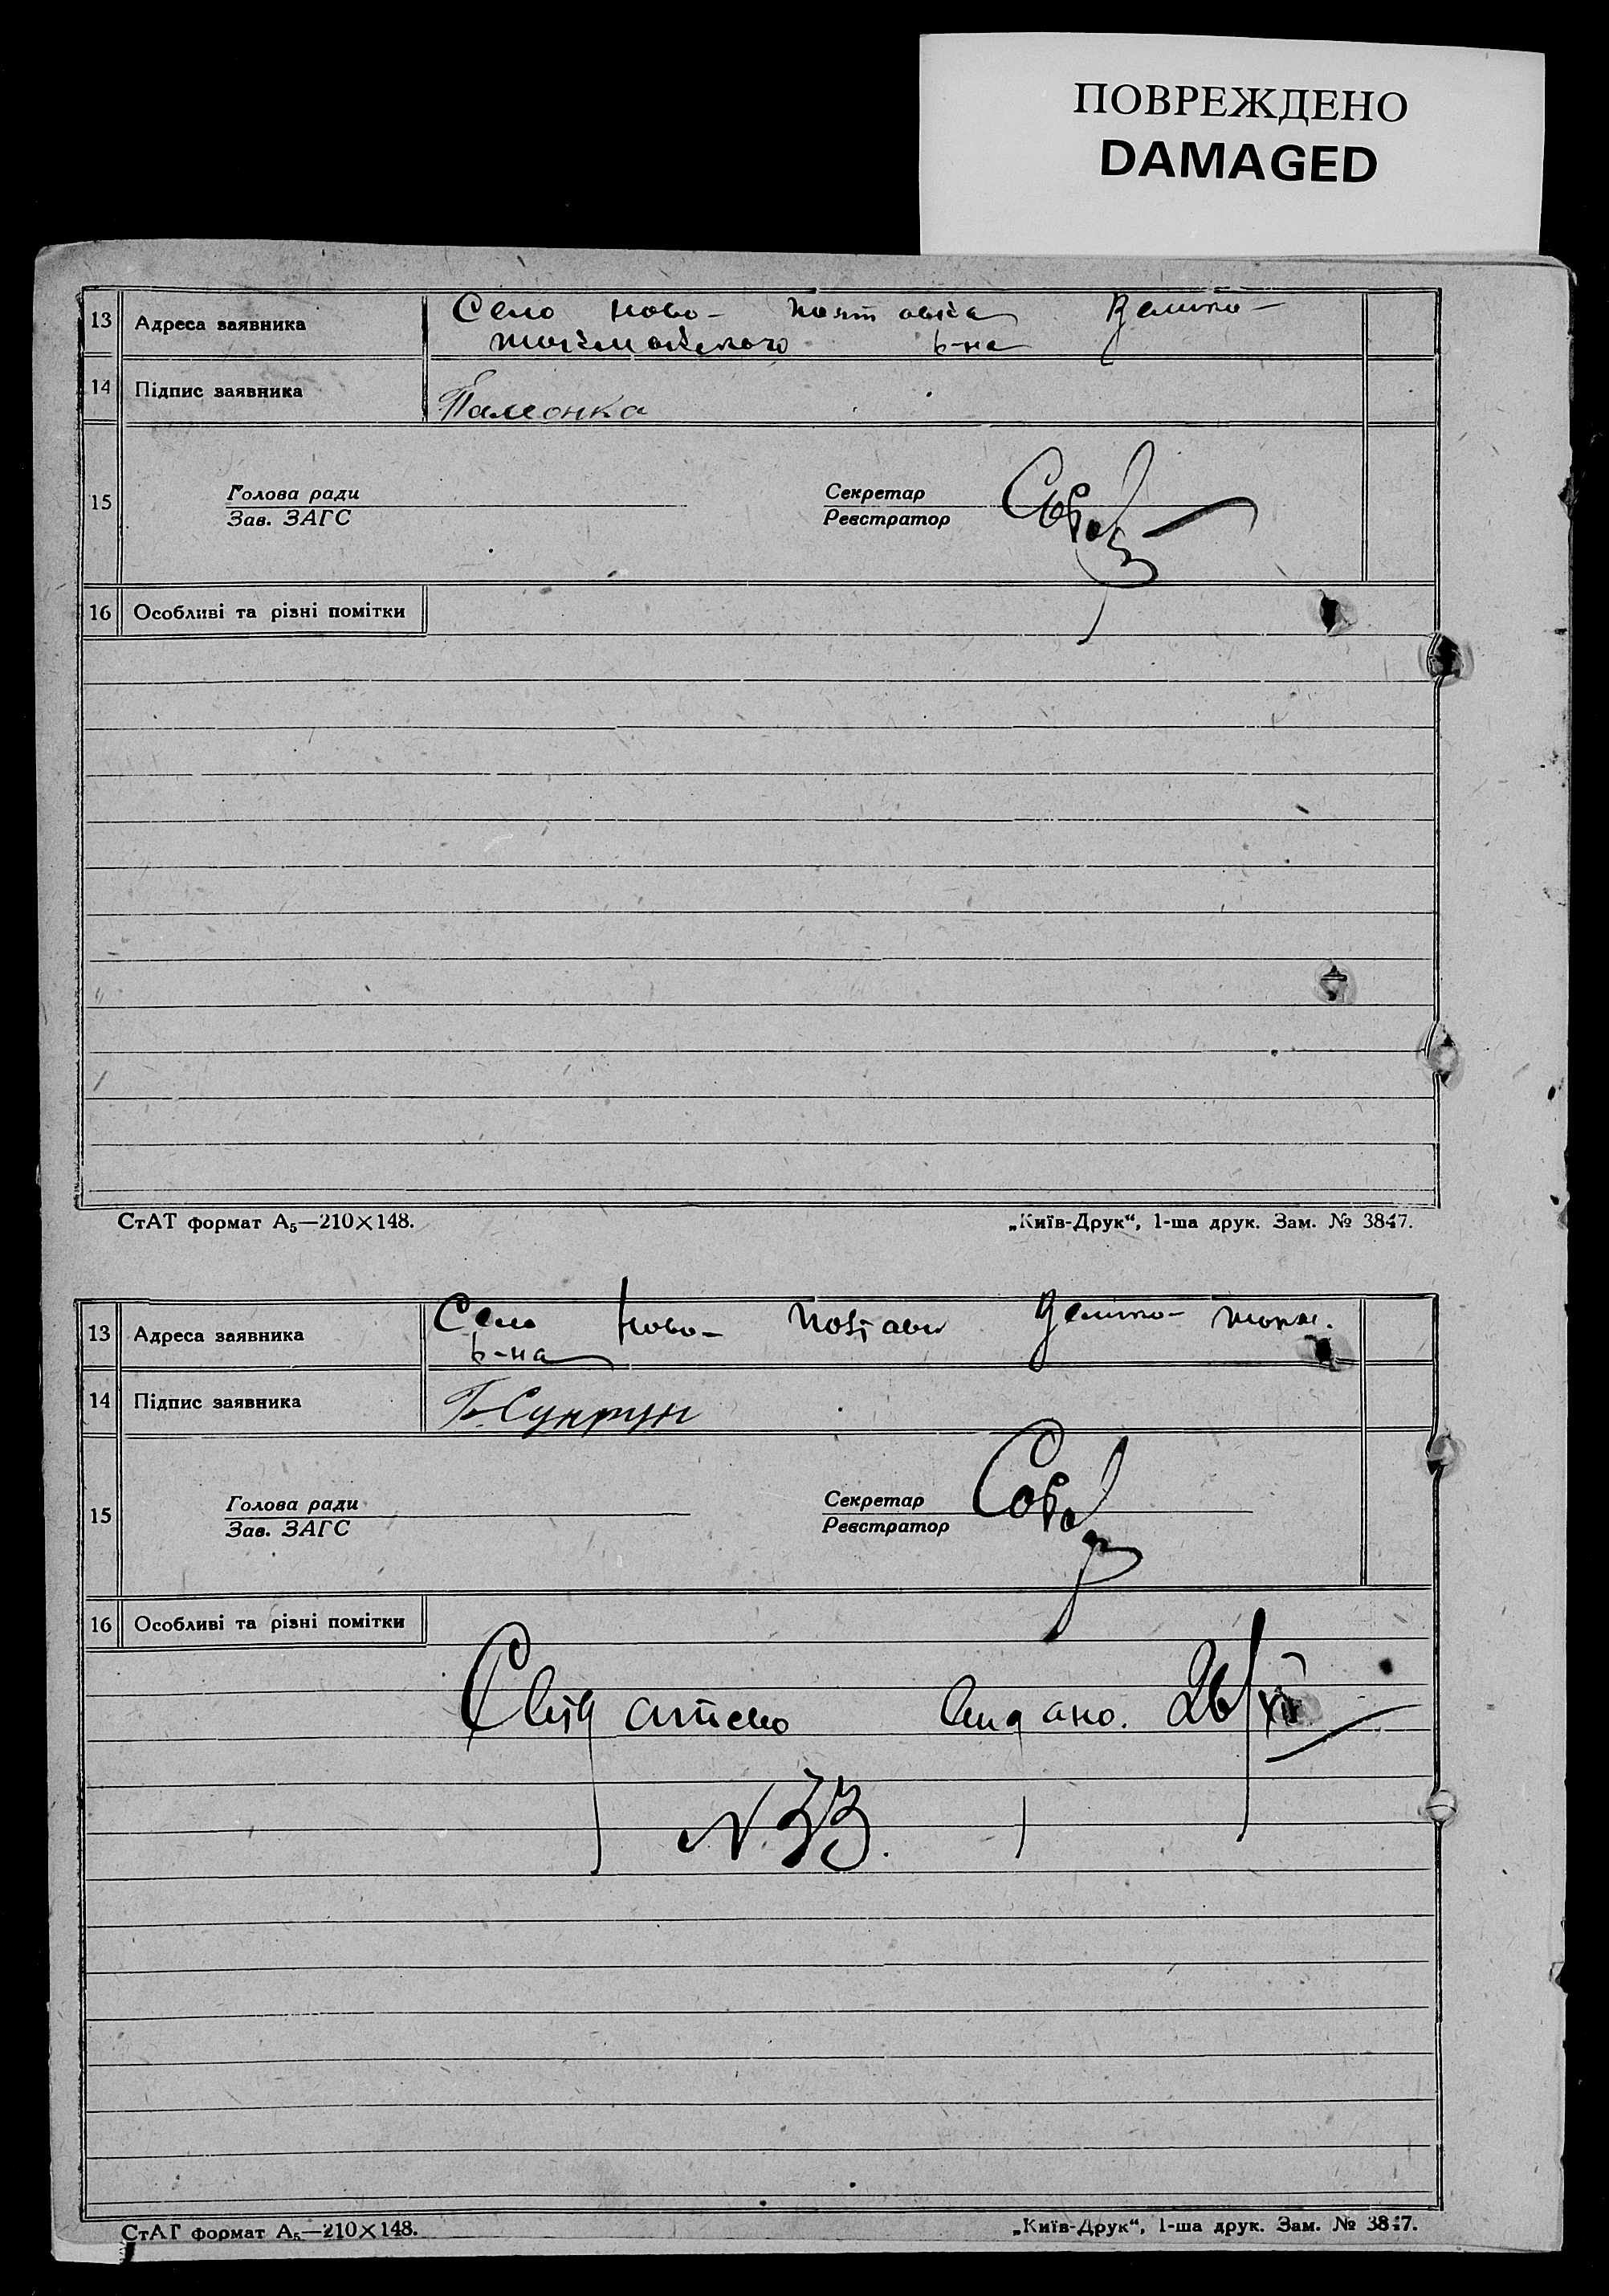 ПОВРЕЖДЕНО
DAMAGED
13 Адреса заявника Село Ново- Велико-
р-на
14 Підпис заявника
15 Голова ради Секретар
Зав. ЗАГС Реєстратор
16 Особливі та різні помітки
СтАТ формат А₅—210×148. „Київ-Друк“, 1-ша друк. Зам. № 3847.
13 Адреса заявника Село Ново- Велико- Токм.
р-на
14 Підпис заявника
15 Голова ради Секретар
Зав. ЗАГС Реєстратор
16 Особливі та різні помітки
видано. 26/XII
N 33.
СтАТ формат А₅—210×148. „Київ-Друк“, 1-ша друк. Зам. № 3847.